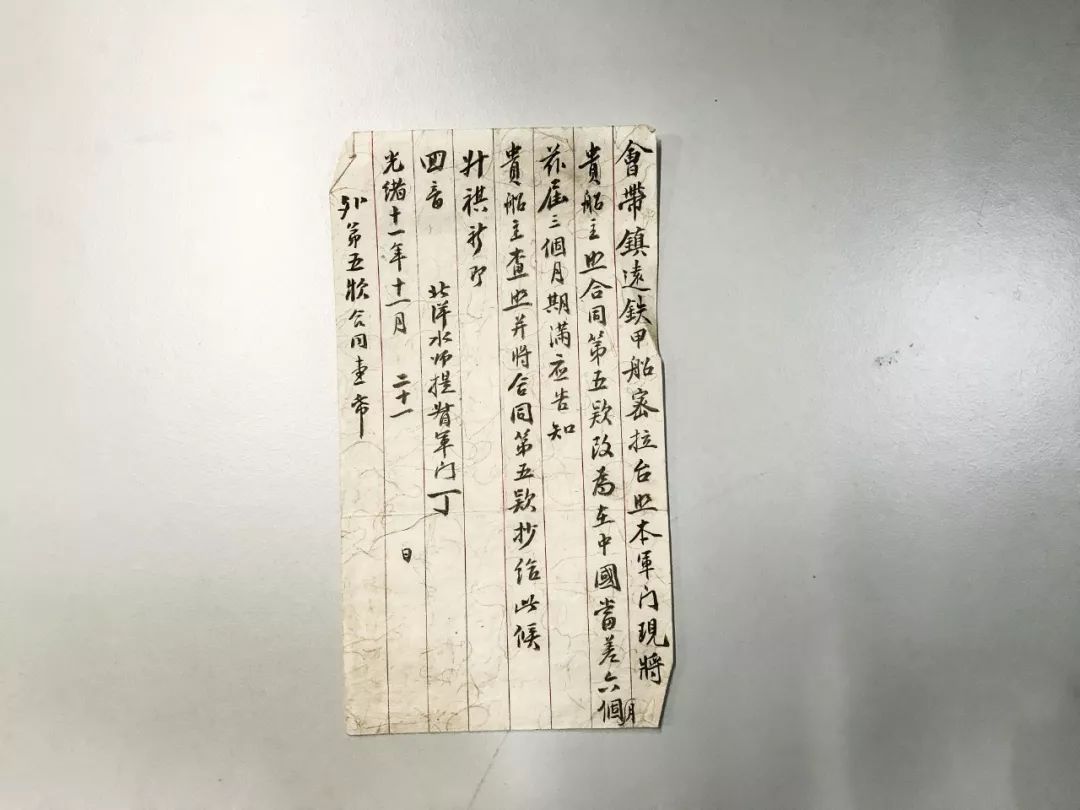 會帶鎮遠鉄甲船密拉台照本軍门現將
貴船主照合同第五欵改爲在中國當差六個月
茲届三個月期滿应告知
貴船主查照并將合同第五欵抄给此候
升祺祈即
回音
北洋水师提督军门丁
光緒十一年十一月 二十一 日
外第五欵合同壹帋